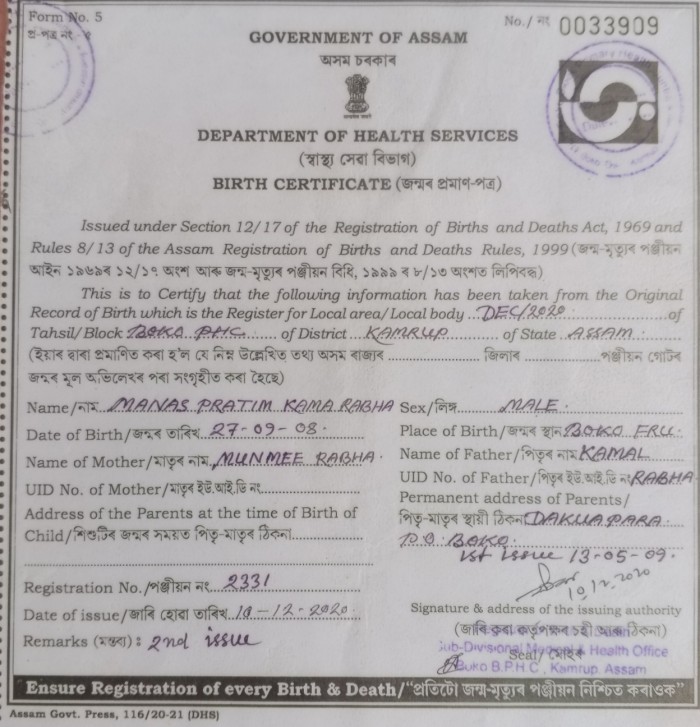 Form No. 5
প্ৰ-পত্ৰ নং - ৫
No./ নং 0033909
GOVERNMENT OF ASSAM
অসম চৰকাৰ
DEPARTMENT OF HEALTH SERVICES
(স্বাস্থ্য সেৱা বিভাগ)
BIRTH CERTIFICATE (জন্মৰ প্ৰমাণ-পত্ৰ)
Issued under Section 12/17 of the Registration of Births and Deaths Act, 1969 and
Rules 8/13 of the Assam Registration of Births and Deaths Rules, 1999 (জন্ম-মৃত্যুৰ পঞ্জীয়ন
আইন ১৯৬৯ৰ ১২/১৭ অংশ আৰু জন্ম-মৃত্যুৰ পঞ্জীয়ন বিধি, ১৯৯৯ ৰ ৮/১৩ অংশত লিপিবদ্ধ)
This is to Certify that the following information has been taken from the Original
Record of Birth which is the Register for Local area/Local body DEC/2020 of
Tahsil/Block BOKO PHC of District KAMRUP of State ASSAM.
(ইয়াৰ দ্বাৰা প্ৰমাণিত কৰা হ'ল যে নিম্ন উল্লেখিত তথ্য অসম ৰাজ্যৰ ............ জিলাৰ ............ পঞ্জীয়ন গোটৰ
জন্মৰ মূল অভিলেখৰ পৰা সংগৃহীত কৰা হৈছে)
Name/নাম MANAS PRATIM KAMA RABHA Sex/লিঙ্গ MALE.
Date of Birth/জন্মৰ তাৰিখ 27-09-08. Place of Birth/জন্মৰ স্থান BOKO FRU.
Name of Mother/মাতৃৰ নাম MUNMEE RABHA. Name of Father/পিতৃৰ নাম KAMAL
UID No. of Mother/মাতৃৰ ইউ.আই.ডি নং UID No. of Father/পিতৃৰ ইউ.আই.ডি নং RABHA
Address of the Parents at the time of Birth of Permanent address of Parents/
Child/শিশুটিৰ জন্মৰ সময়ত পিতৃ-মাতৃৰ ঠিকনা পিতৃ-মাতৃৰ স্থায়ী ঠিকনা DAKUAPARA.
P.O: BOKO.
1st issue 13-05-09.
Registration No./পঞ্জীয়ন নং 2331
10.12.2020
Date of issue/জাৰি হোৱা তাৰিখ 10-12-2020. Signature & address of the issuing authority
Remarks (মন্তব্য) : 2nd issue (জাৰি কৰা কৰ্তৃপক্ষৰ চহী আৰু ঠিকনা)
Seal/ মোহৰ
Sub-Divisional Medical & Health Office
Boko B.P.H.C, Kamrup, Assam
Ensure Registration of every Birth & Death/"প্ৰতিটো জন্ম-মৃত্যুৰ পঞ্জীয়ন নিশ্চিত কৰাওক"
Assam Govt. Press, 116/20-21 (DHS)